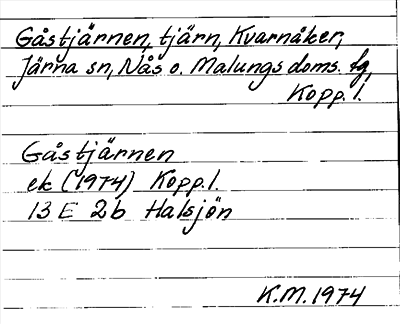 Gåstjärnen, tjärn, Kvarnåker,
Järna sn, Nås o. Malungs doms. fg,
Kopp. l.
Gåstjärnen
ek (1974) Kopp. l.
13 E 2b Halsjön
K.M. 1974